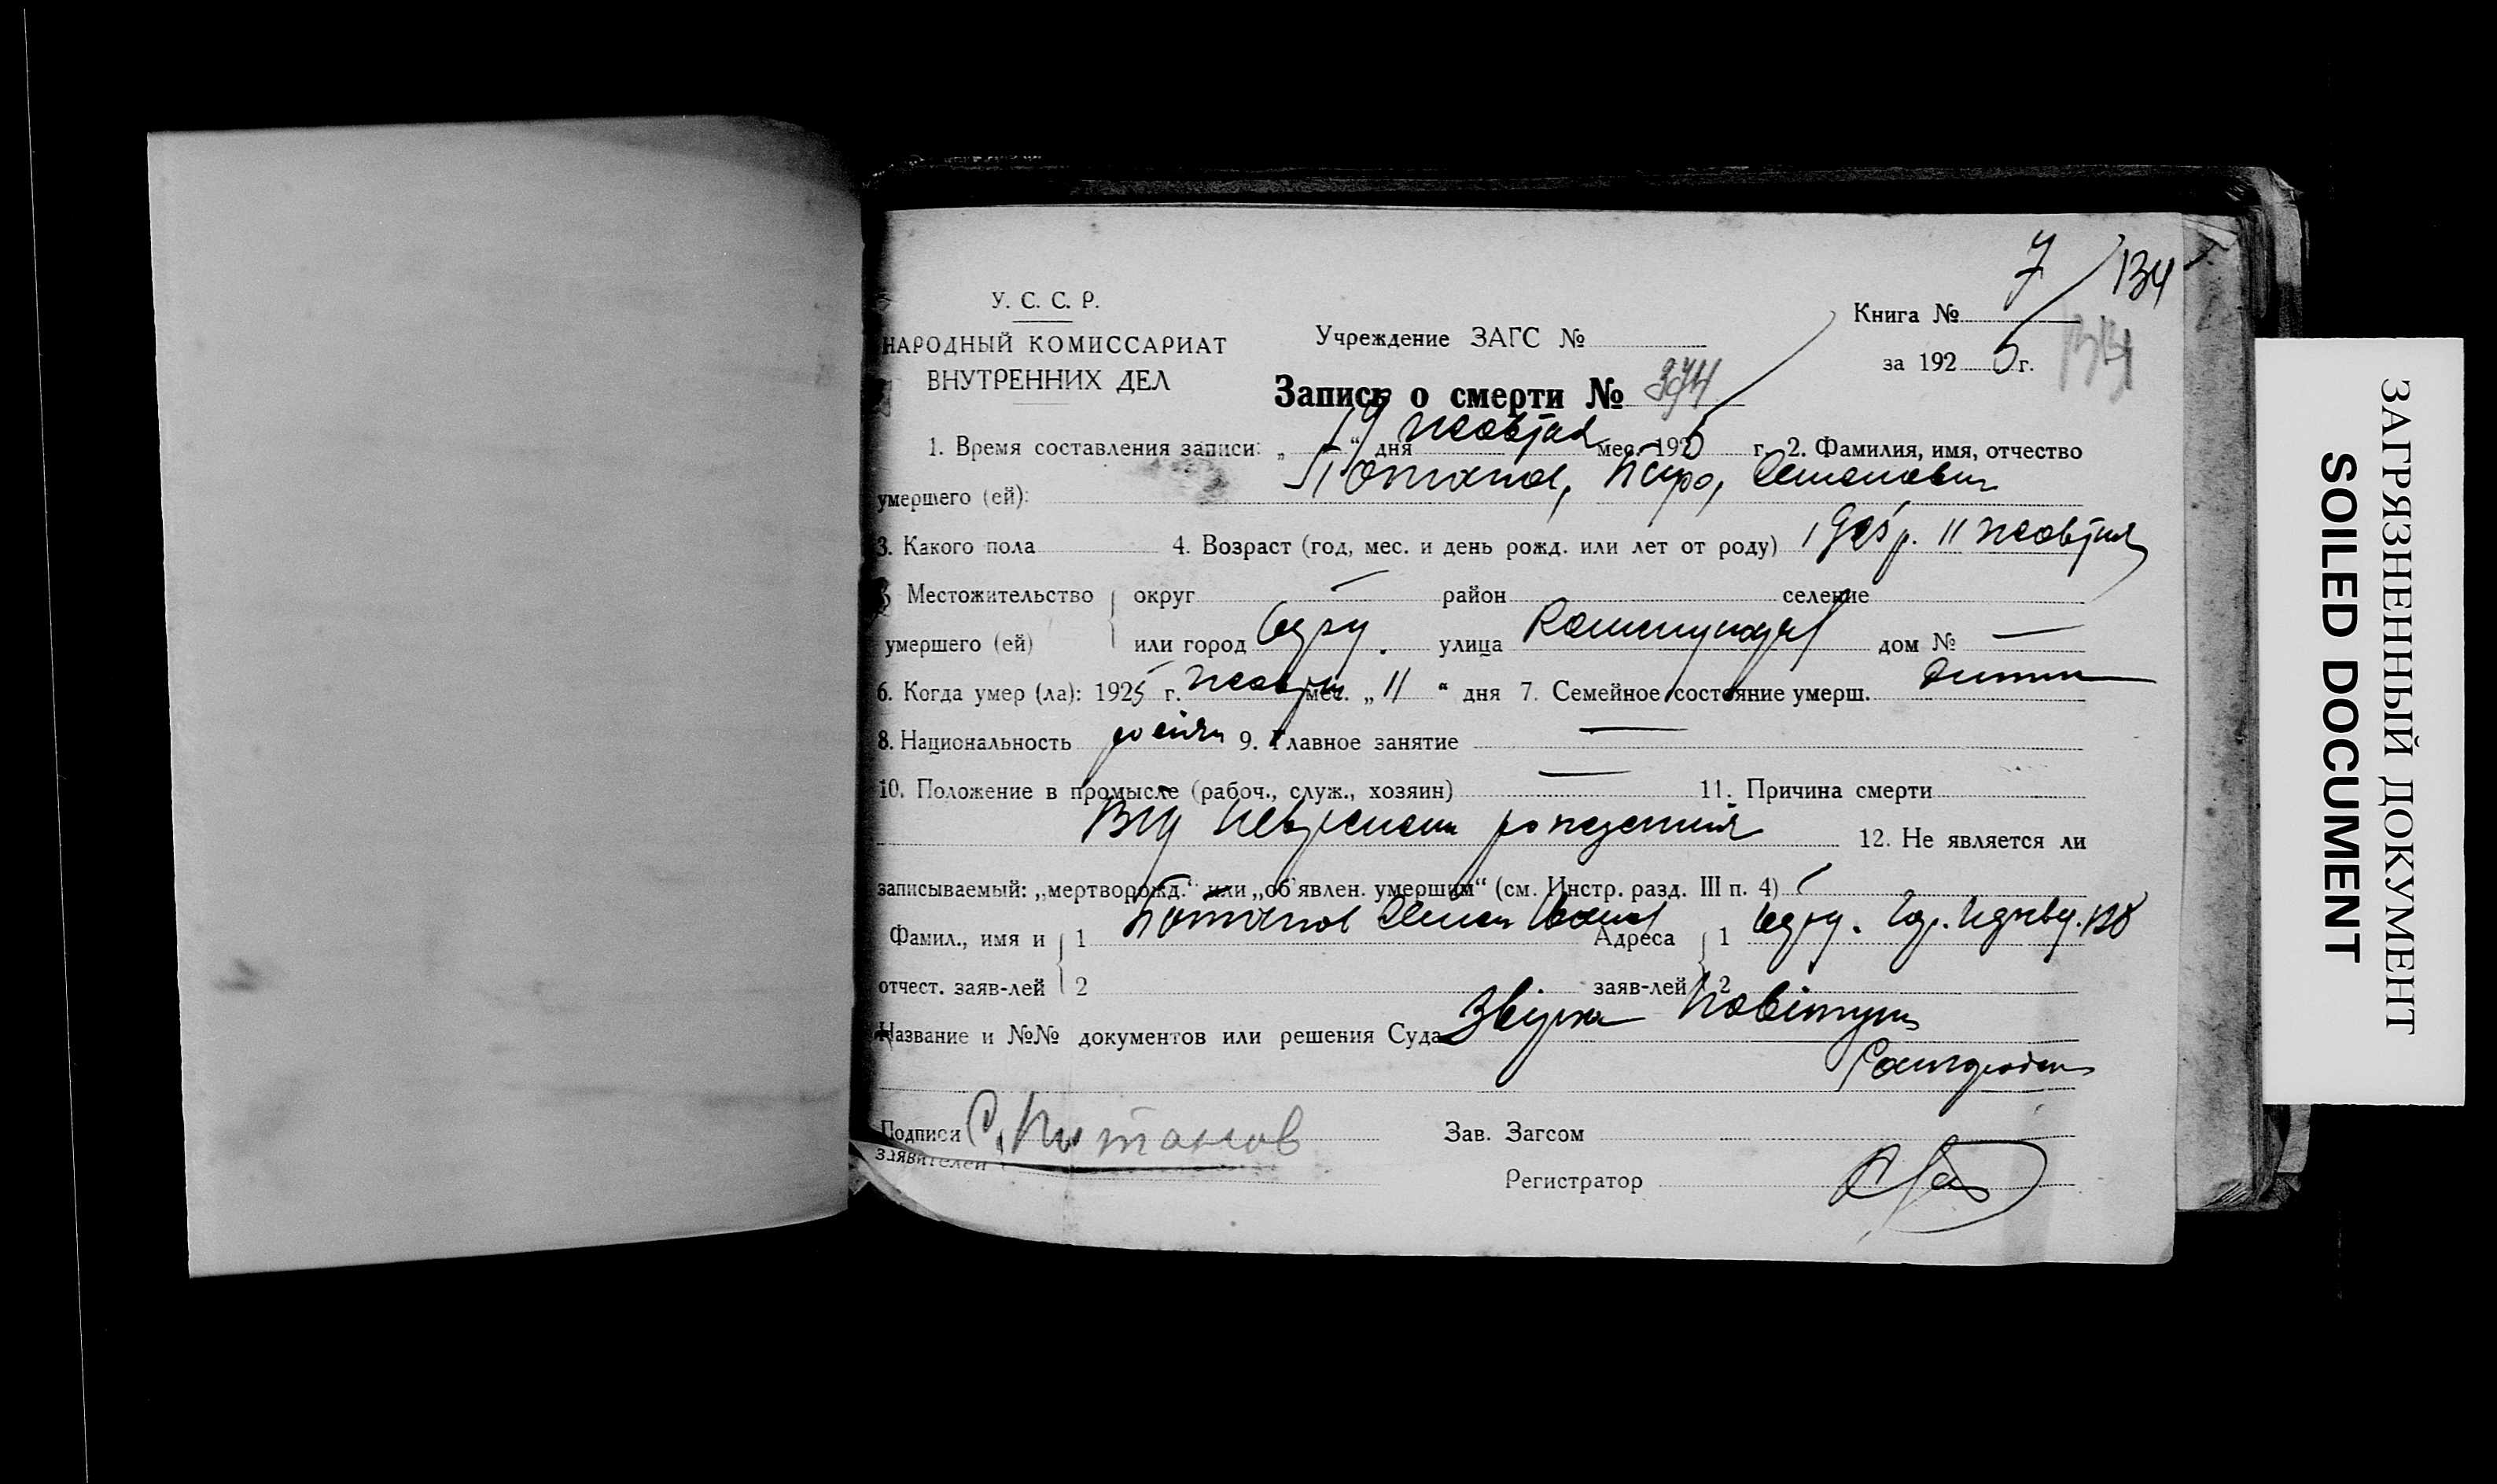 7 / 134
У. С. С. Р.
НАРОДНЫЙ КОМИССАРИАТ
ВНУТРЕННИХ ДЕЛ
Учреждение ЗАГС №
Книга №
за 192 5 г.
134
Запись о смерти № 374
1. Время составления записи: „ 19 “ дня жовтня мес. 1925 г. 2. Фамилия, имя, отчество
умершего (ей): Потанов,
3. Какого пола 4. Возраст (год, мес. и день рожд. или лет от роду) 1925 р. 11 жовтня
5 Местожительство округ — район селение
умершего (ей) или город улица дом № —
6. Когда умер (ла): 1925 г. жовтн мес. „ 11 “ дня 7. Семейное состояние умерш. дитин
8. Национальность росіян 9. Главное занятие —
10. Положение в промысле (рабоч., служ., хозяин) — 11. Причина смерти
Від рождення 12. Не является ли
записываемый: „мертворожд.“ или „об'явлен. умершим“ (см. Инстр. разд. III п. 4)
Фамил., имя и 1 Потанов Семен Адреса 1 128
отчест. заяв-лей 2 заяв-лей 2
Название и №№ документов или решения Суда
Подписи С. Потанов Зав. Загсом
заявителей
Регистратор
ЗАГРЯЗНЕННЫЙ ДОКУМЕНТ
SOILED DOCUMENT